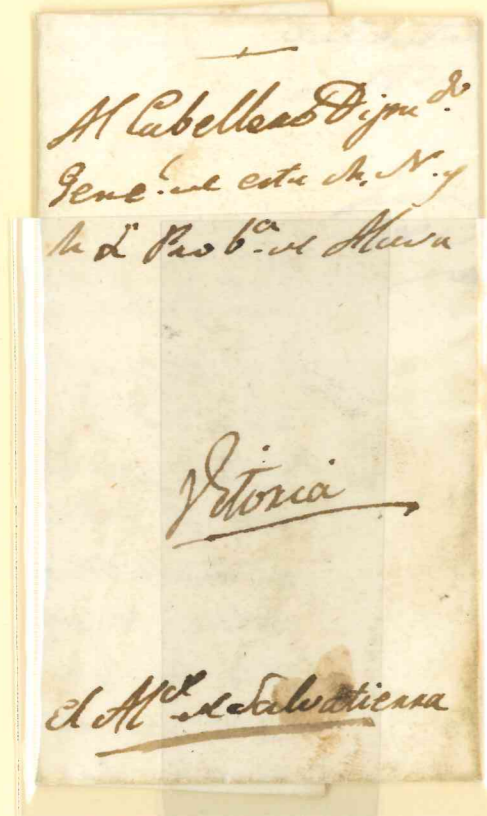 Al Caballero Diputdo.
Genel. de esta M. N. y
M L Proba. de Alava
Vitoria
El Alcde de Salvatierra